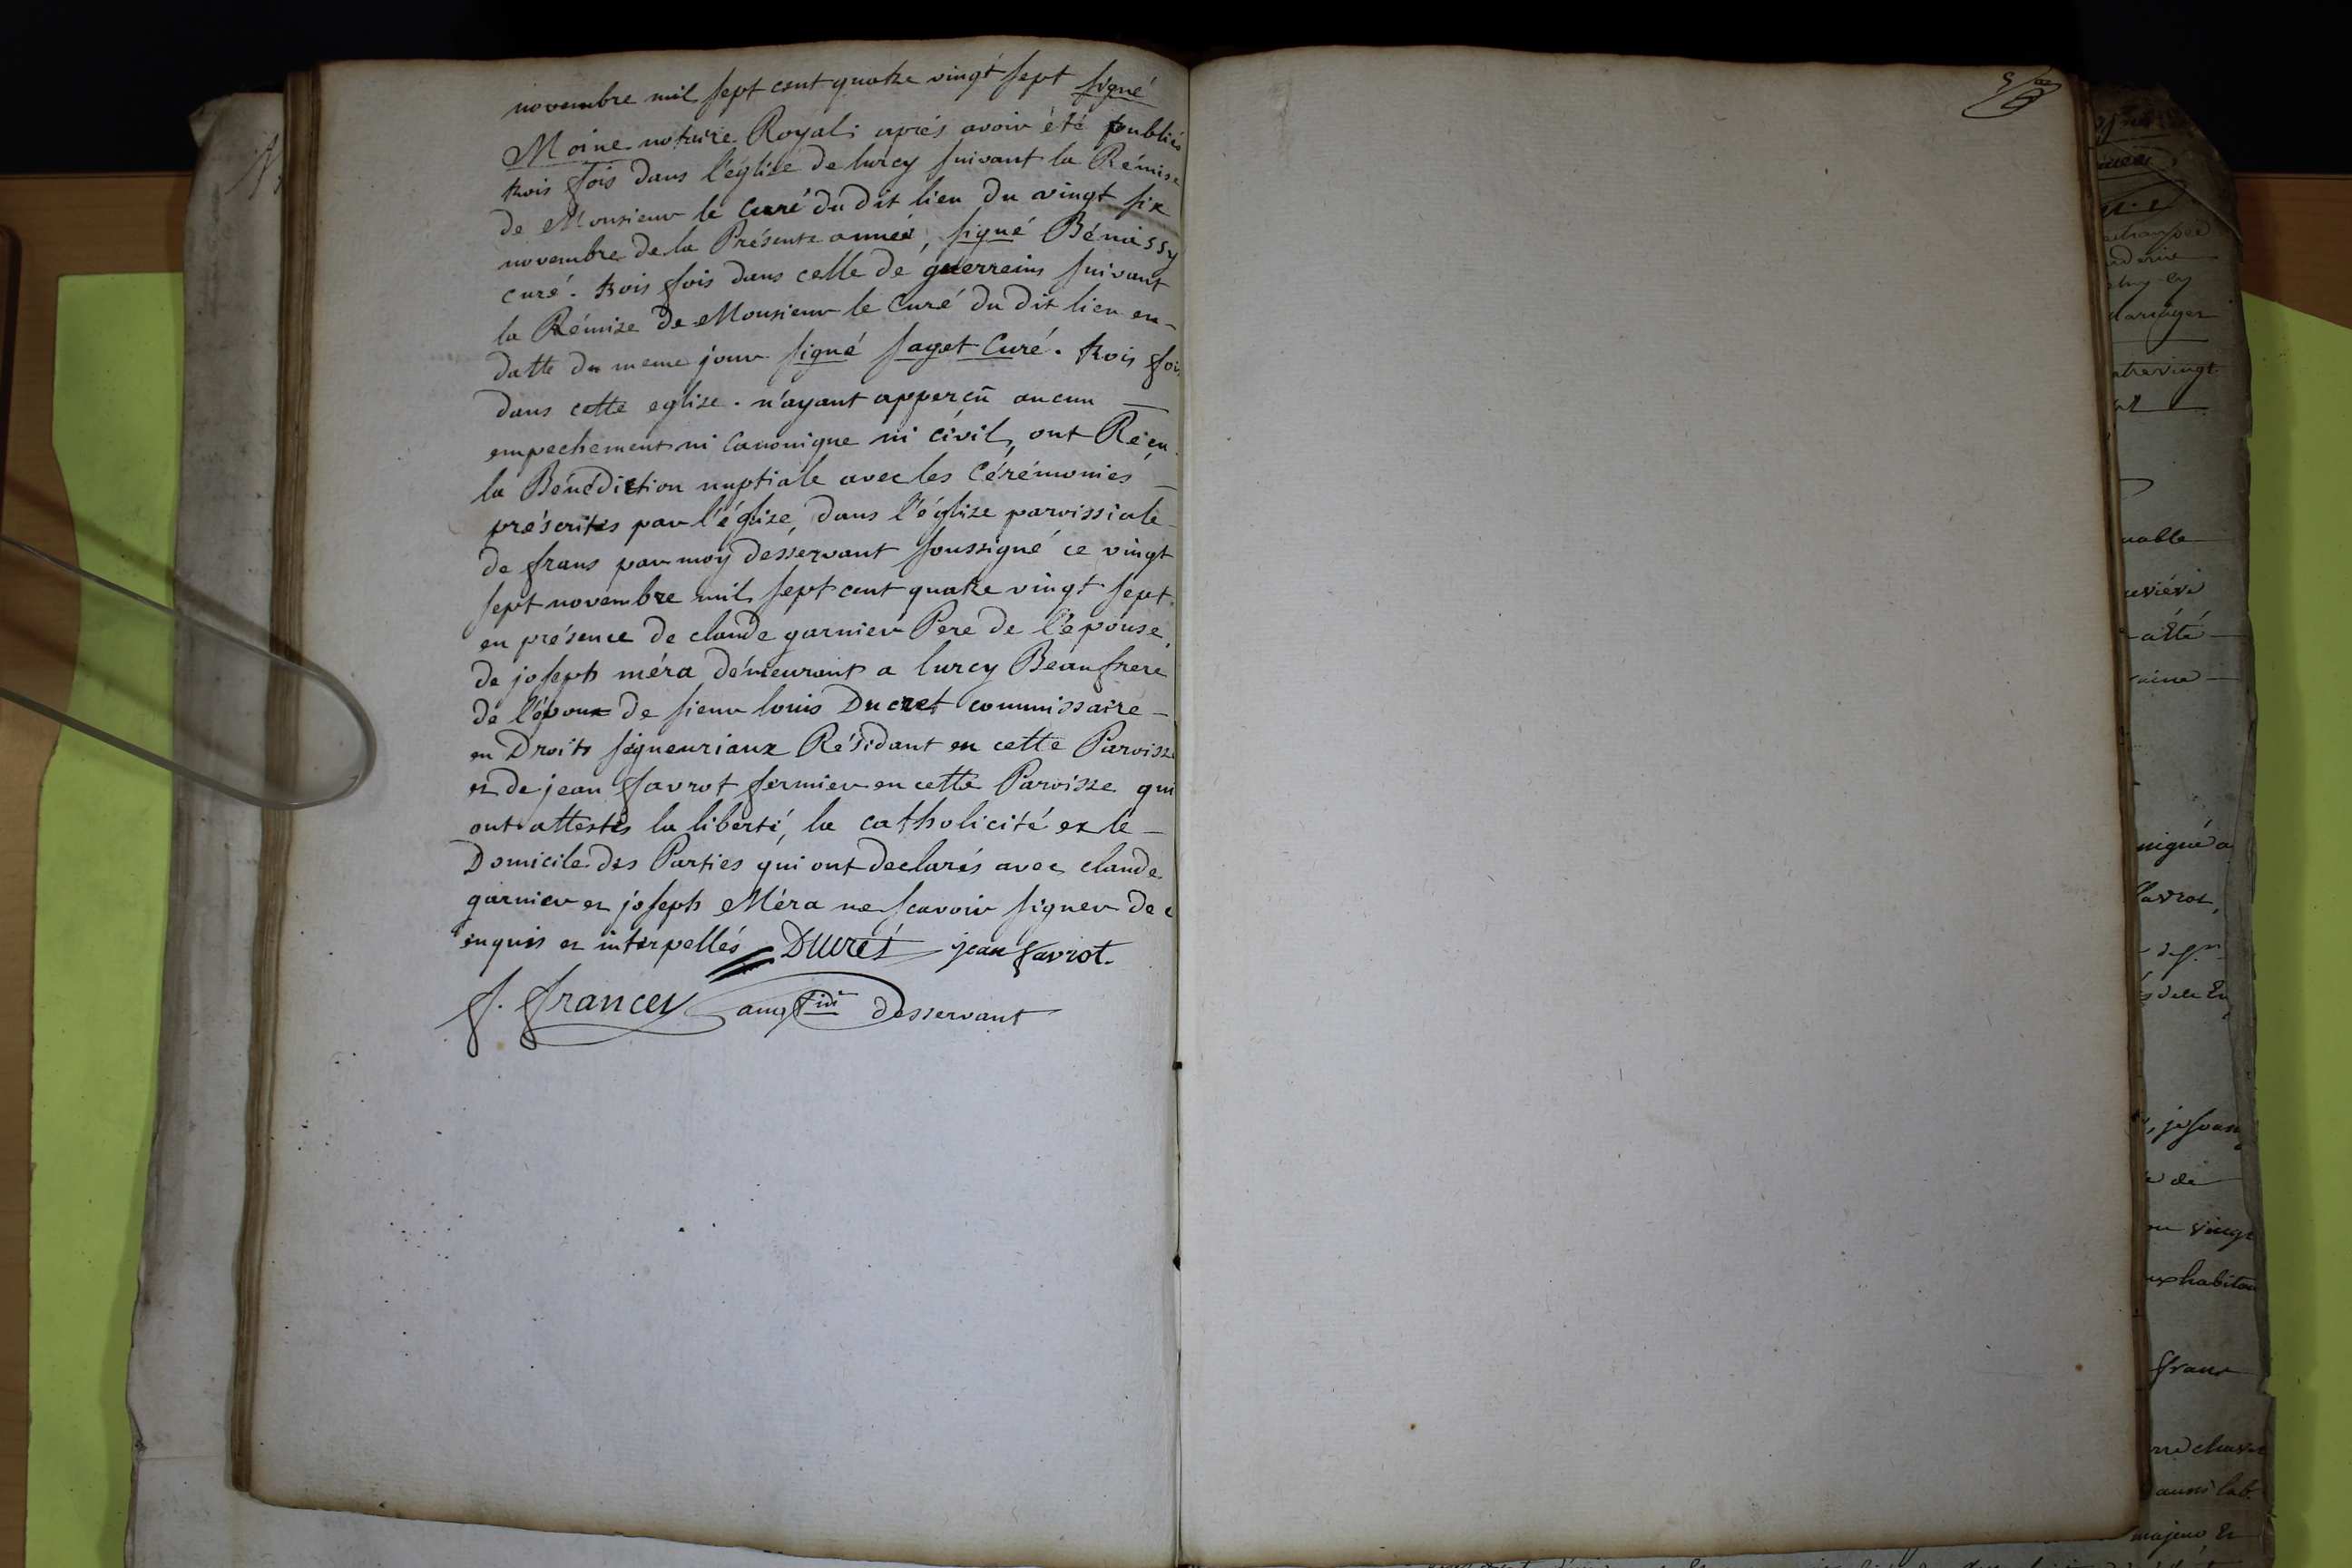 novembre mil sept cent quatre vingt sept signé
Moine notaire Royal; après avoir été publiés
trois fois dans l'église de lurcy suivant la Rémise
de Monsieur le Curé du dit lieu du vingt six
novembre de la Présente année, signé Bénassy
curé. trois fois dans celle de guerreins suivant
la Rémize de Monsieur le Curé du dit lieu en-
datte du meme jour signé sayet Curé. trois fois
dans cette eglise. n'ayant apperçu aucun
empechement ni Canonique ni civil, ont Réçu
la Bénédiction nuptiale avec les Cérémonies
préscrites par l'église, dans l'église paroissiale
de frans par moy desservant soussigné ce vingt
sept novembre mil sept cent quatre vingt sept
en présence de claude garnier Pere de l'épouse,
de joseph méra démeurant a lurcy Beaufrere
de l'époux de sieur louis Ducret commissaire
en Droits seigneuriaux Résidant en cette Paroisse
et de jean favrot fermier en cette Paroisse qui
ont attestés la liberté, la catholicité et le
Domicile des Parties qui ont declarés avec claude
garnier et joseph Méra ne scavoir signer de c
enquis et interpellés Ducret jean favrot.
f. francey desservant
uable
nigué a
favrot,
vingt
franc